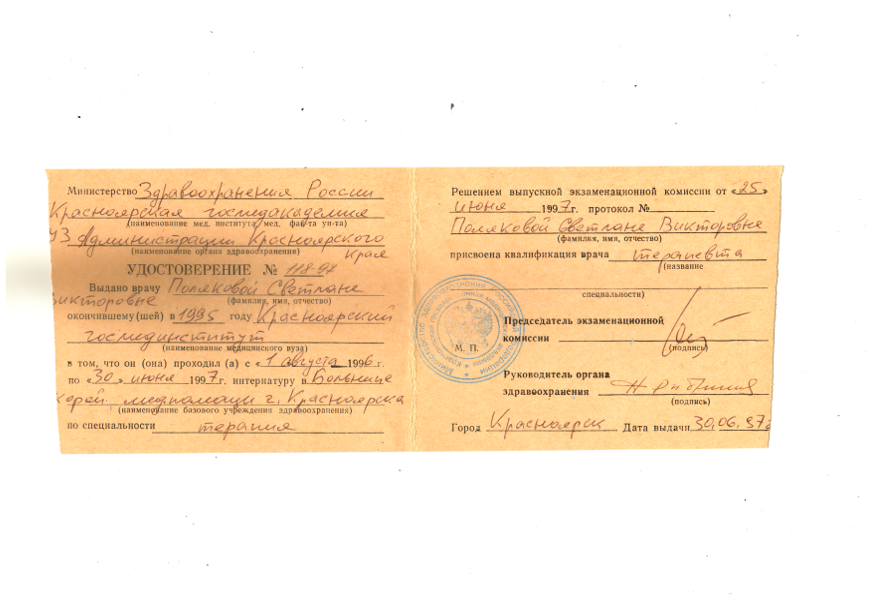 Министерство Здравоохранения России
Красноярская госмедакадемия
(наименование мед. института, мед. фак-та ун-та)
УЗ Администрации Красноярского
(наименование органа здравоохранения) края
УДОСТОВЕРЕНИЕ № 118-97
Выдано врачу Поляковой Светлане
Викторовне (фамилия, имя, отчество)
окончившему (шей) в 1995 году Красноярский
госмединститут
(наименование медицинского вуза)
в том, что он (она) проходил (а) с «1 августа 1996 г.
по «30» июня 1997 г. интернатуру в Больнице
скорой медпомощи г. Красноярска
(наименование базового учреждения здравоохранения)
по специальности терапия
Решением выпускной экзаменационной комиссии от «25»
июня 1997 г. протокол №
Поляковой Светлане Викторовне
(фамилия, имя, отчество)
присвоена квалификация врача терапевта
(название
специальности)
Председатель экзаменационной
комиссии
(подпись)
М. П.
Руководитель органа
здравоохранения
(подпись)
Город Красноярск Дата выдачи 30.06.97г